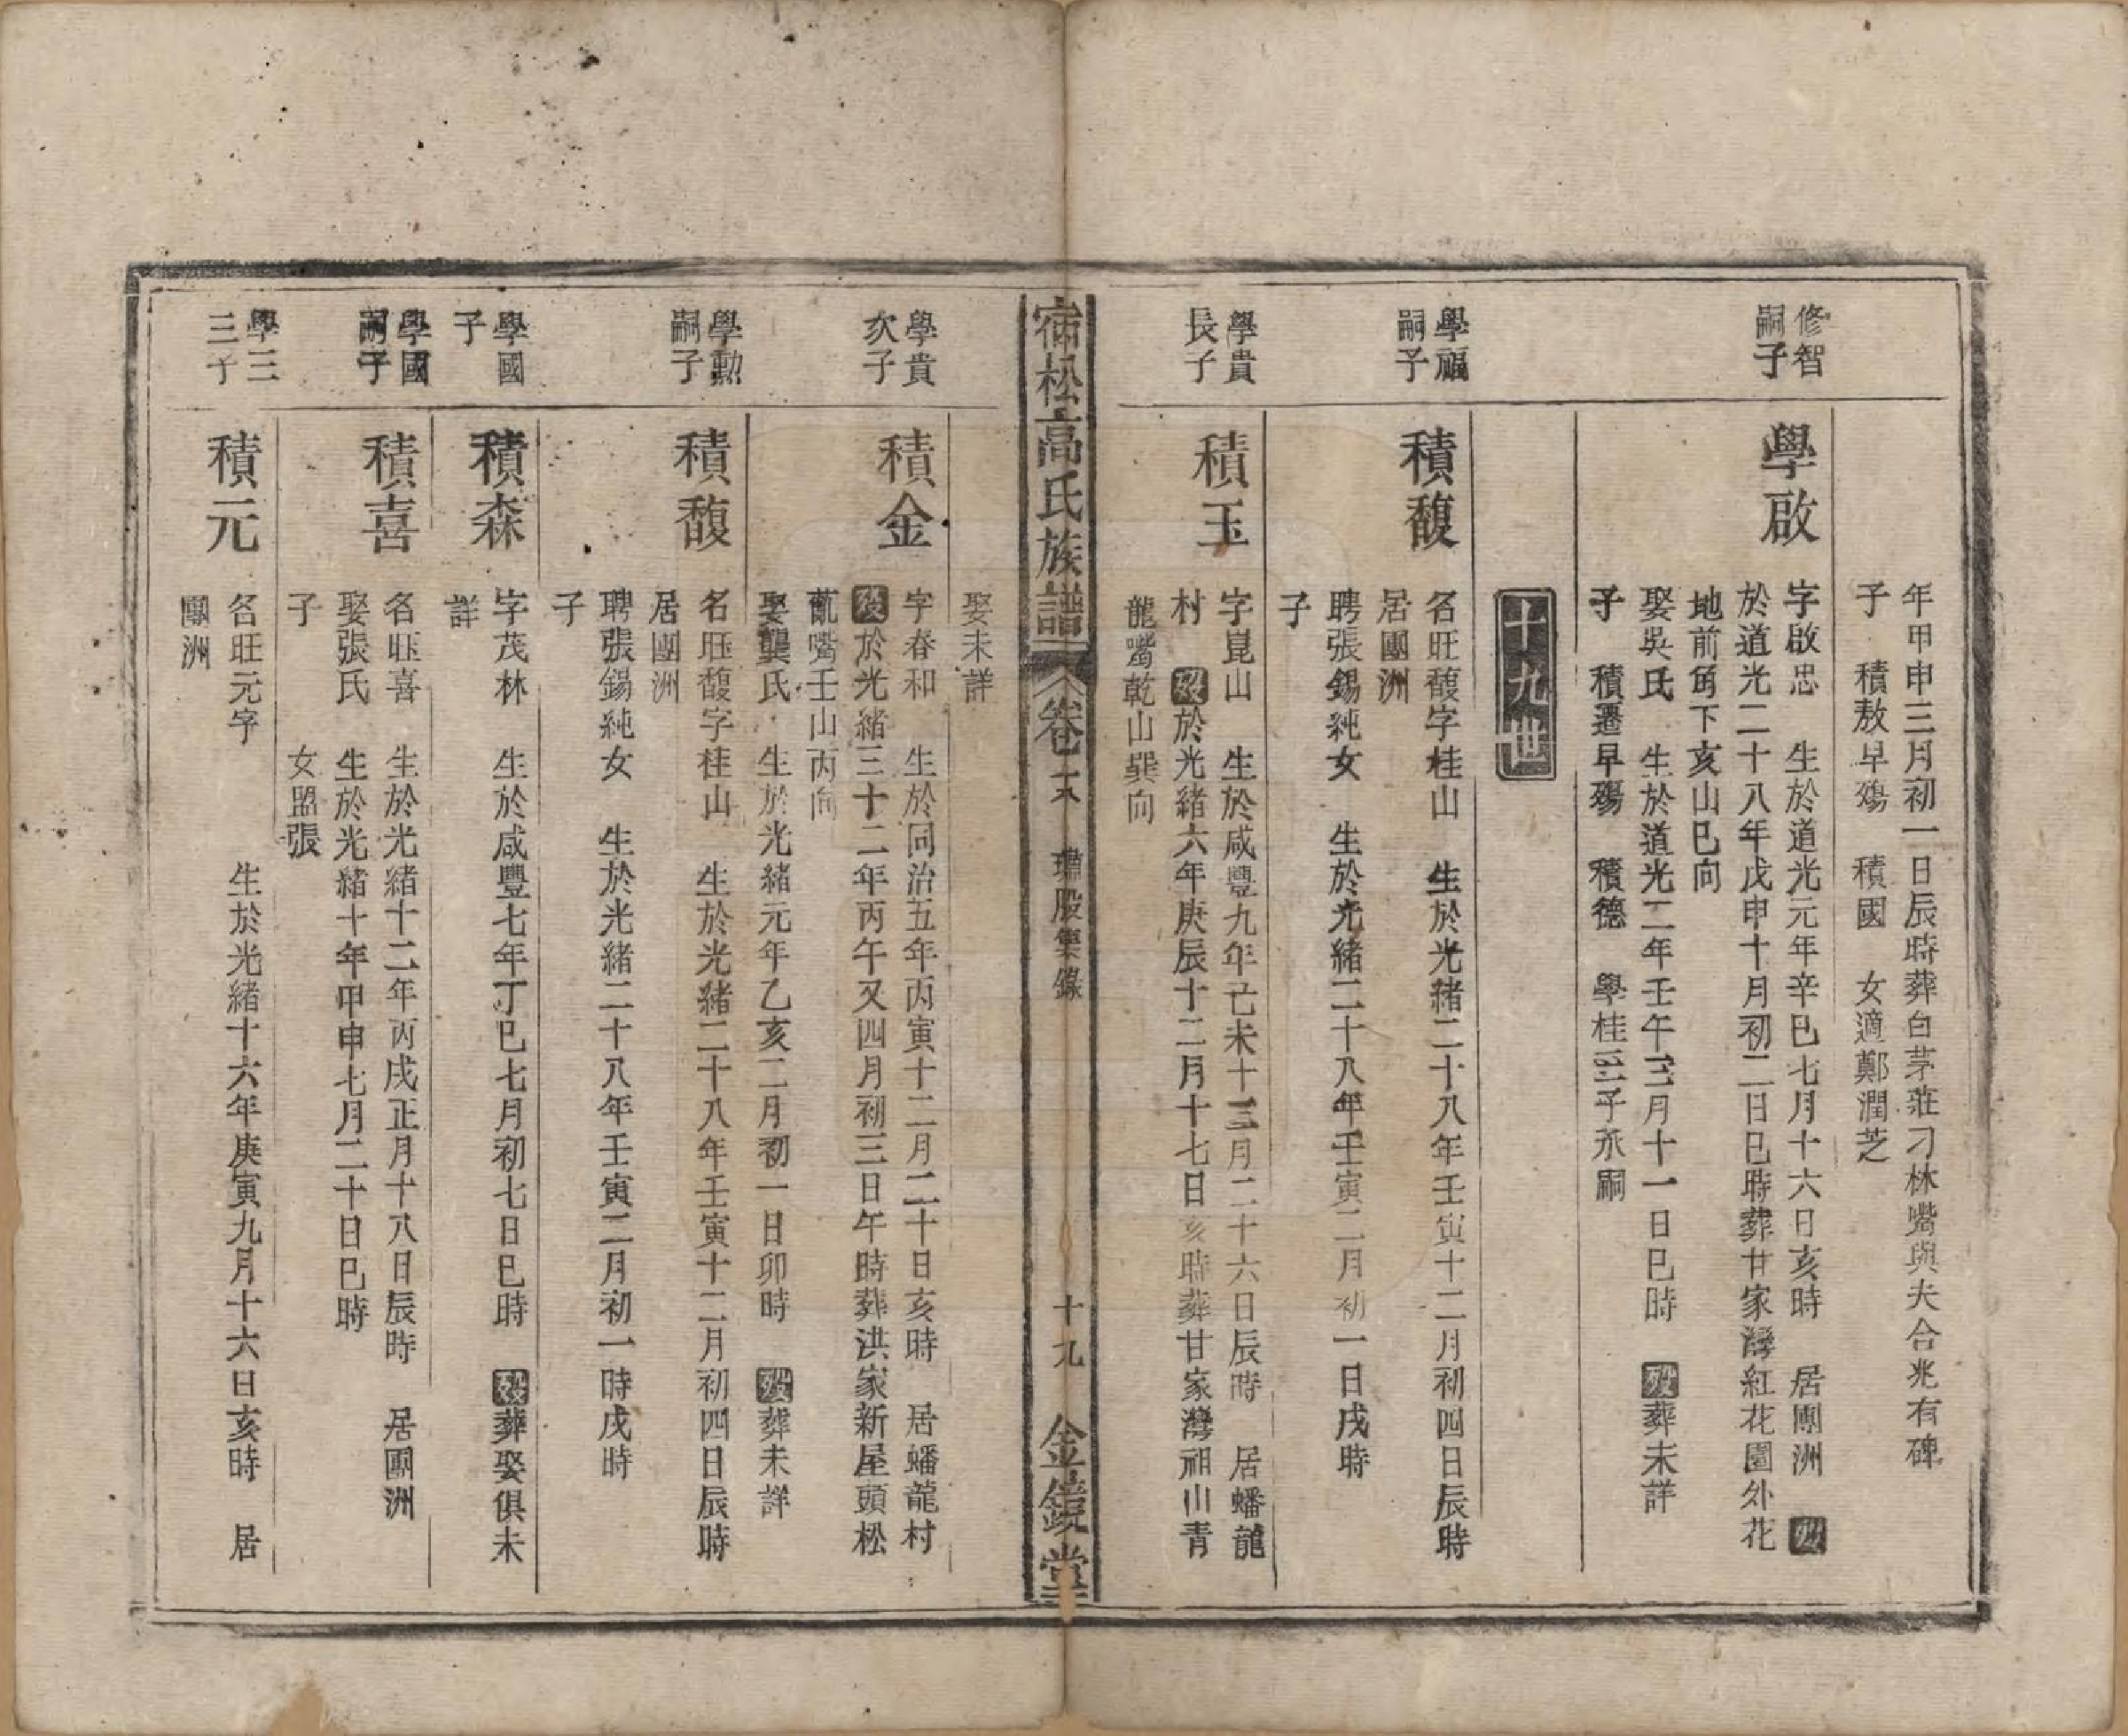 年甲申三月初一日辰時葬白茅莊刁林嘴與夫合兆有碑
子　積敖早殤　積國　女適鄭潤芝
修智
嗣子
學啟
字啟忠　生於道光元年辛巳七月十六日亥時　居團洲　歿
於道光二十八年戊申十月初二日巳時葬甘家灣紅花園外花
地前角下亥山巳向
娶吳氏　生於道光二年壬午三月十一日巳時　歿葬未詳
子　積遷早殤　積德　學桂三子承嗣
十九世
學福
嗣子
積馥
名旺馥字桂山　生於光緒二十八年壬寅十二月初四日辰時
居團洲
聘張錫純女　生於光緒二十八年壬寅二月初一日戌時
子
學貴
長子
積玉
字崑山　生於咸豐九年己未十三月二十六日辰時　居蟠龍
村　歿於光緒六年庚辰十二月十七日亥時葬甘家灣祖山青
龍嘴乾山巽向
宿松高氏族譜　卷十八　股集錄　十九　金鏡堂
娶未詳
學貴
次子
積金
字春和　生於同治五年丙寅十二月二十日亥時　居蟠龍村
歿於光緒三十二年丙午又四月初三日午時葬洪家新屋頭松
蓏嘴壬山丙向
娶龔氏　生於光緒元年乙亥二月初一日卯時　歿葬未詳
學勳
嗣子
積馥
名旺馥字桂山　生於光緒二十八年壬寅十二月初四日辰時
居團洲
聘張錫純女　生於光緒二十八年壬寅二月初一時戌時
子
學國
子
積森
字茂林　生於咸豐七年丁巳七月初七日巳時　歿葬娶俱未
詳
學國
嗣子
積喜
名旺喜　生於光緒十二年丙戌正月十八日辰時　居團洲
娶張氏　生於光緒十年甲申七月二十日巳時
子　　　女盟張
學三
三子
積元
名旺元字　　　生於光緒十六年庚寅九月十六日亥時　居
團洲